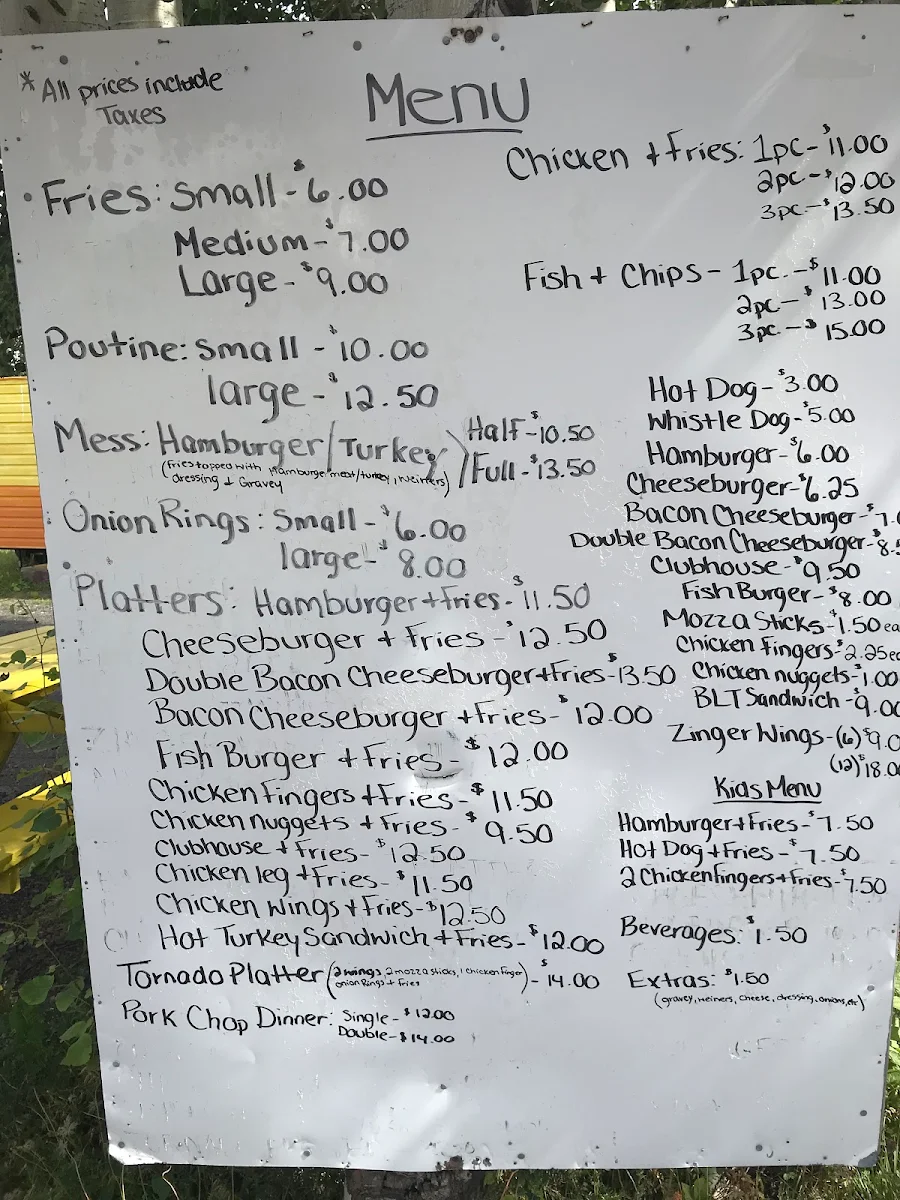 * All prices include
Taxes
Menu
Fries: Small - $6.00
Medium - $7.00
Large - $9.00
Poutine: Small - $10.00
large - $12.50
Mess: Hamburger/Turkey
(fries topped with Hamburger meat/turkey, weiners)
dressing + Gravey
Half - $10.50
Full - $13.50
Onion Rings: Small - $6.00
large - $8.00
Platters: Hamburger + Fries - $11.50
Cheeseburger + Fries - $12.50
Double Bacon Cheeseburger + Fries - $13.50
Bacon Cheeseburger + Fries - $12.00
Fish Burger + Fries - $12.00
Chicken Fingers + Fries - $11.50
Chicken nuggets + Fries - $9.50
Clubhouse + Fries - $12.50
Chicken leg + Fries - $11.50
Chicken Wings + Fries - $12.50
Hot Turkey Sandwich + Fries - $12.00
Tornado Platter (2 wings, 2 mozza sticks, 1 chicken finger) - $14.00
onion Rings + Fries
Pork Chop Dinner: Single - $12.00
Double - $14.00
Chicken + Fries: 1pc - $11.00
2pc - $12.00
3pc - $13.50
Fish + Chips - 1pc. - $11.00
2pc - $13.00
3pc - $15.00
Hot Dog - $3.00
Whistle Dog - $5.00
Hamburger - $6.00
Cheeseburger - $6.25
Bacon Cheeseburger - $7.0
Double Bacon Cheeseburger - $8.5
Clubhouse - $9.50
Fish Burger - $8.00
Mozza Sticks - $1.50 ea
Chicken Fingers - $2.25 ea
Chicken nuggets - $1.00
BLT Sandwich - $9.00
Zinger Wings - (6) $9.0
(12) $18.00
Kids Menu
Hamburger + Fries - $7.50
Hot Dog + Fries - $7.50
2 Chicken Fingers + Fries - $7.50
Beverages: $1.50
Extras: $1.50
(gravey, weiners, cheese, dressing, onions, etc)